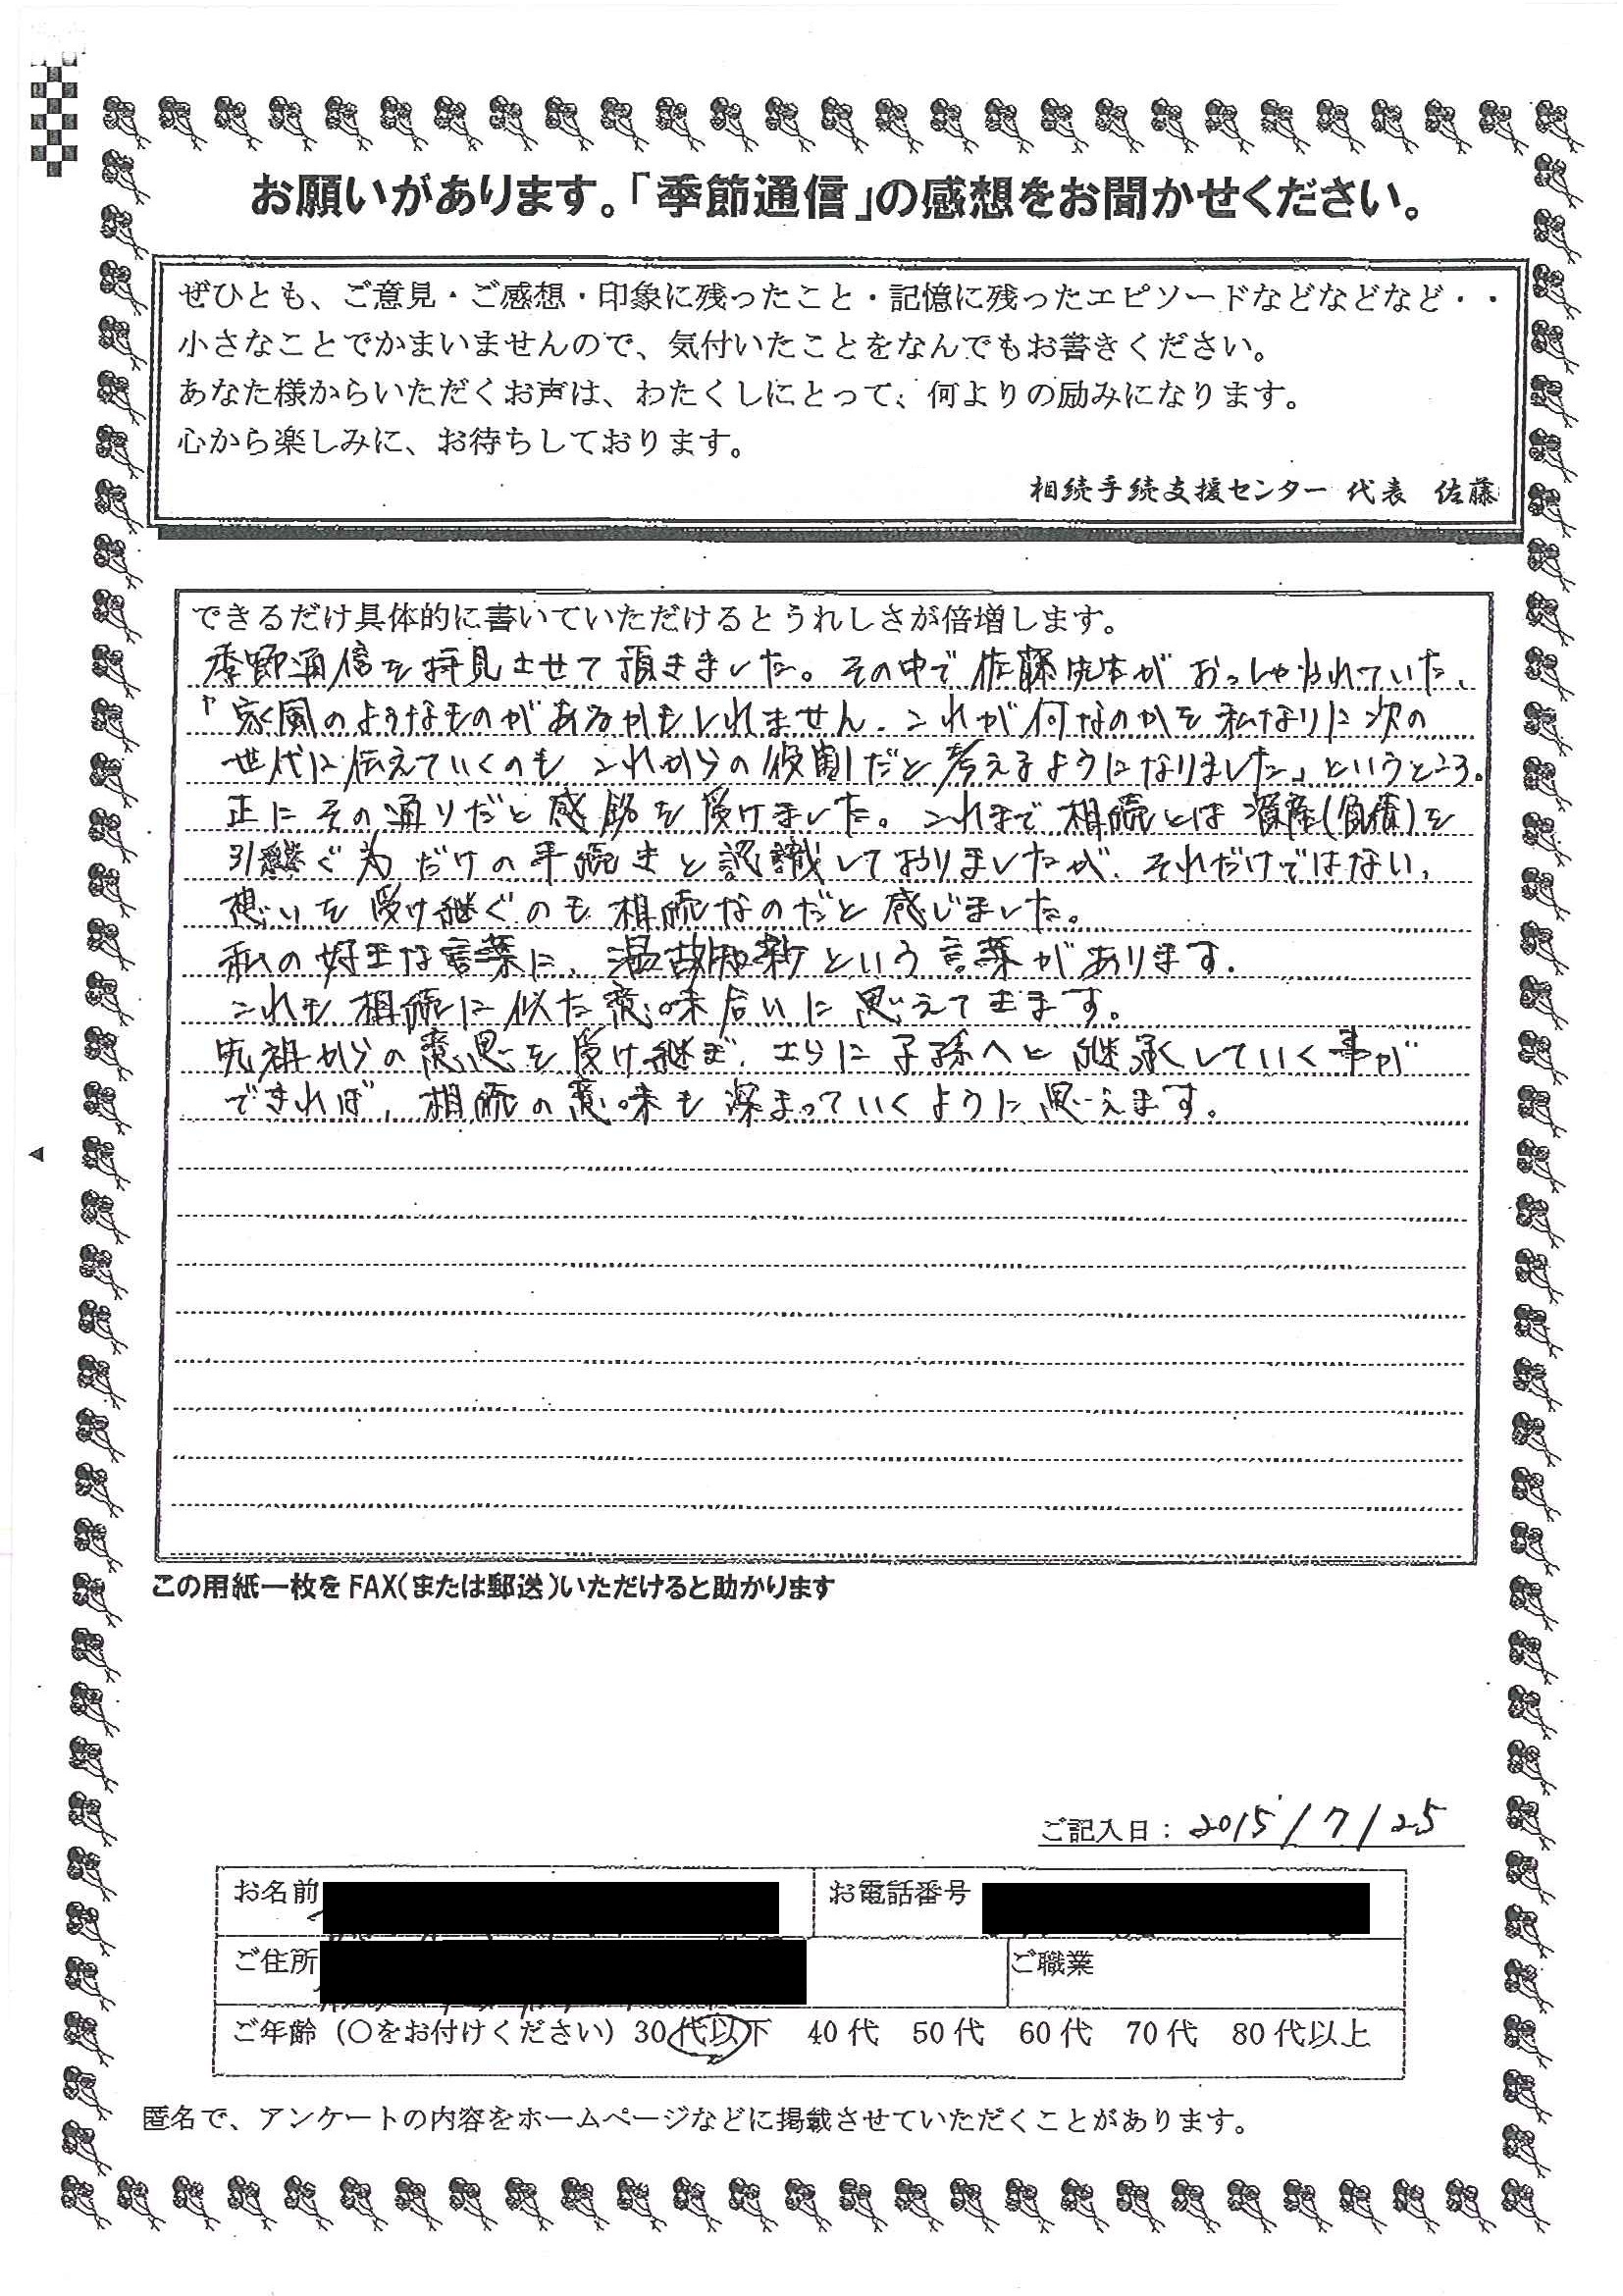 お願いがあります。「季節通信」の感想をお聞かせください。
ぜひとも、ご意見・ご感想・印象に残ったこと・記憶に残ったエピソードなどなどなど・・
小さなことでかまいませんので、気付いたことをなんでもお書きください。
あなた様からいただくお声は、わたくしにとって、何よりの励みになります。
心から楽しみに、お待ちしております。
相続手続支援センター 代表 佐藤
できるだけ具体的に書いていただけるとうれしさが倍増します。
季節通信を拝見させて頂きました。その中で佐藤先生がおっしゃられていた、
「家風のようなものがあるかもしれません。これが何なのかを私なりに次の
世代に伝えていくのもこれからの役割だと考えるようになりました」というところ。
正にその通りだと感銘を受けました。これまで相続とは資産(負債)を
引継ぐ為だけの手続きと認識しておりましたが、それだけではない、
想いを受け継ぐのも相続なのだと感じました。
私の好きな言葉に、温故知新という言葉があります。
これも相続に似た意味合いに思えてきます。
先祖からの意思を受け継ぎ、さらに子孫へと継承していく事が
できれば、相続の意味も深まっていくように思えます。
この用紙一枚をFAX(または郵送)いただけると助かります
ご記入日：2015/7/25
お名前 お電話番号
ご住所 ご職業
ご年齢（○をお付けください）30代以下 40代 50代 60代 70代 80代以上
匿名で、アンケートの内容をホームページなどに掲載させていただくことがあります。